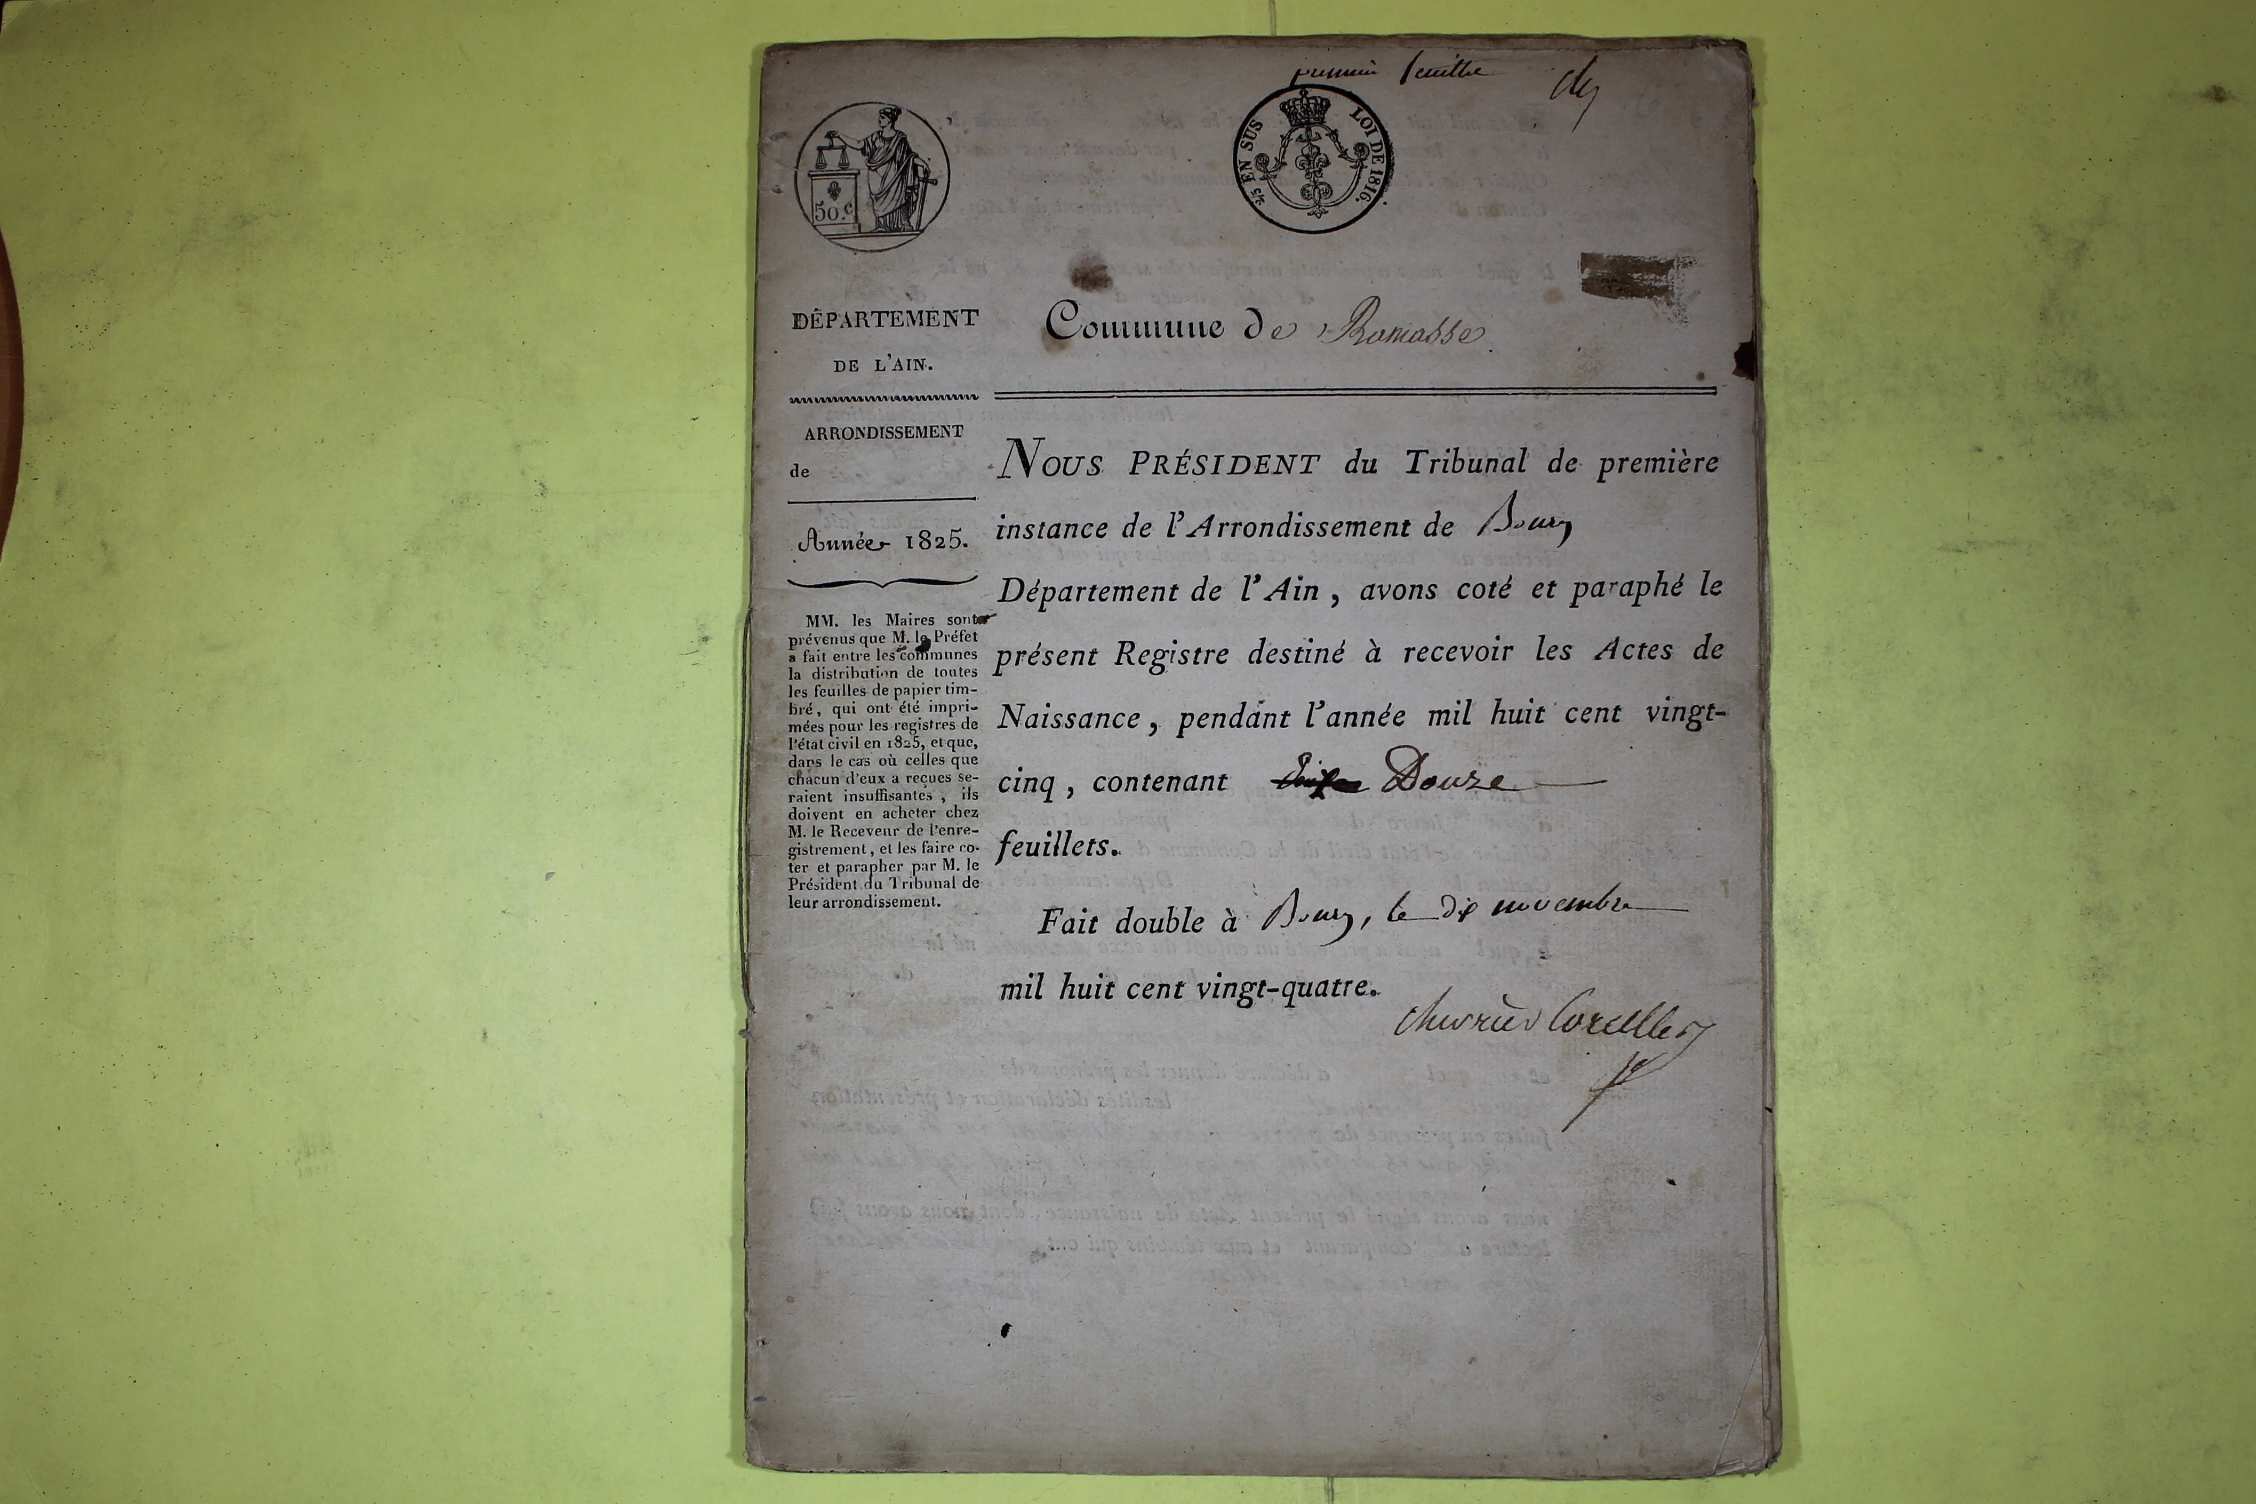 premier feuillet
50.c
¼5 EN SUS LOI DE 1816.
DÉPARTEMENT
DE L'AIN.
Commune de Romasse
ARRONDISSEMENT
de
Année 1825.
MM. les Maires sont
prévenus que M. le Préfet
a fait entre les communes
la distribution de toutes
les feuilles de papier tim-
bré, qui ont été impri-
mées pour les registres de
l'état civil en 1825, et que,
dans le cas où celles que
chacun d'eux a reçues se-
raient insuffisantes, ils
doivent en acheter chez
M. le Receveur de l'enre-
gistrement, et les faire co-
ter et parapher par M. le
Président du Tribunal de
leur arrondissement.
NOUS PRÉSIDENT du Tribunal de première
instance de l'Arrondissement de Bourg
Département de l'Ain, avons coté et paraphé le
présent Registre destiné à recevoir les Actes de
Naissance, pendant l'année mil huit cent vingt-
cinq, contenant Douze
feuillets.
Fait double à Bourg, le dix novembre
mil huit cent vingt-quatre.